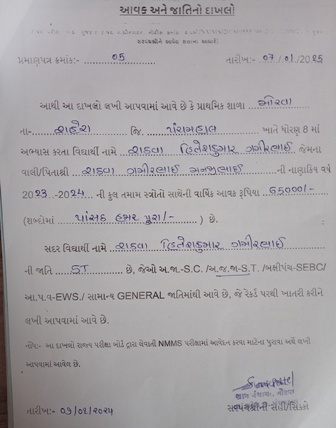 આવક અને જાતિનો દાખલો
પ્રમાણપત્ર ક્રમાંક:- 05 તારીખ:- 07/01/2025
આથી આ દાખલો લખી આપવામાં આવે છે કે પ્રાથમિક શાળા ગોરવા
તા- શહેરા જિ. પંચમહાલ ખાતે ધોરણ 8 માં
અભ્યાસ કરતા વિદ્યાર્થી નામે રાઠવા હિતેશકુમાર ગંભીરભાઈ, જેમના
વાલી/પિતાશ્રી રાઠવા ગંભીરભાઈ ની નાણાકિય વર્ષ
2023-2024 ની કુલ તમામ સ્ત્રોતો સાથેની વાર્ષિક આવક રૂપિયા 65000/-
(શબ્દોમાં પાંસઠ હજાર પુરા/-) છે.
સદર વિદ્યાર્થી નામે રાઠવા હિતેશકુમાર ગંભીરભાઈ
ની જાતિ ST છે, જેઓ અ.જા.-S.C. /અ.જ.જા-S.T. /બક્ષીપંચ-SEBC/
આ.પ.વ-EWS./ સામાન્ય GENERAL જાતિમાંથી આવે છે, જે રેકર્ડ પરથી ખાતરી કરીને
લખી આપવામાં આવે છે.
નોંધ:- આ દાખલો રાજ્ય પરીક્ષા બોર્ડ દ્વારા લેવાતી NMMS પરીક્ષામાં આવેદન કરવા માટેના પુરાવા અર્થે લખી
આપવામાં આવેલ છે.
તારીખ:- 07/01/2025 સરપંચશ્રીની સહી/સિક્કો